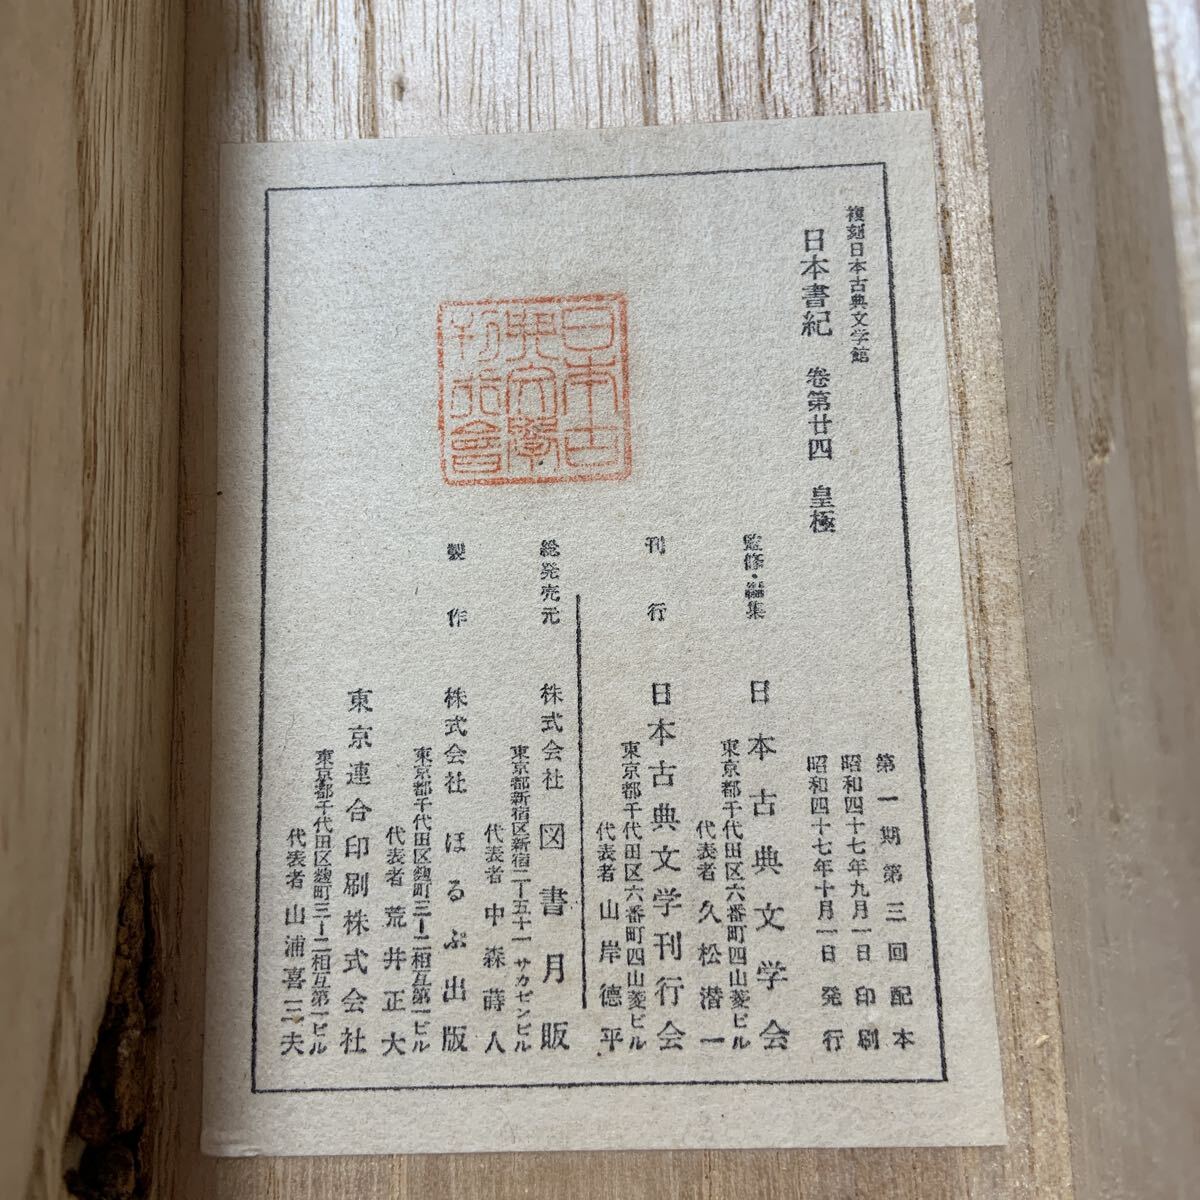 複刻日本古典文学館
日本書紀 巻第廿四 皇極
日本古
典文學
刊行會
第一期第三回配本
昭和四十七年九月一日印刷
昭和四十七年十月一日発行
監修・編集 日本古典文学会
東京都千代田区六番町四山菱ビル
代表者 久松潜一
刊行 日本古典文学刊行会
東京都千代田区六番町四山菱ビル
代表者 山岸德平
総発売元 株式会社 図書月販
東京都新宿区新宿二ー五十一 サカゼンビル
代表者 中森蒔人
製作 株式会社 ほるぷ出版
東京都千代田区麹町三ー二相互第一ビル
代表者 荒井正大
東京連合印刷株式会社
東京都千代田区麹町三ー二相互第一ビル
代表者 山浦喜三夫